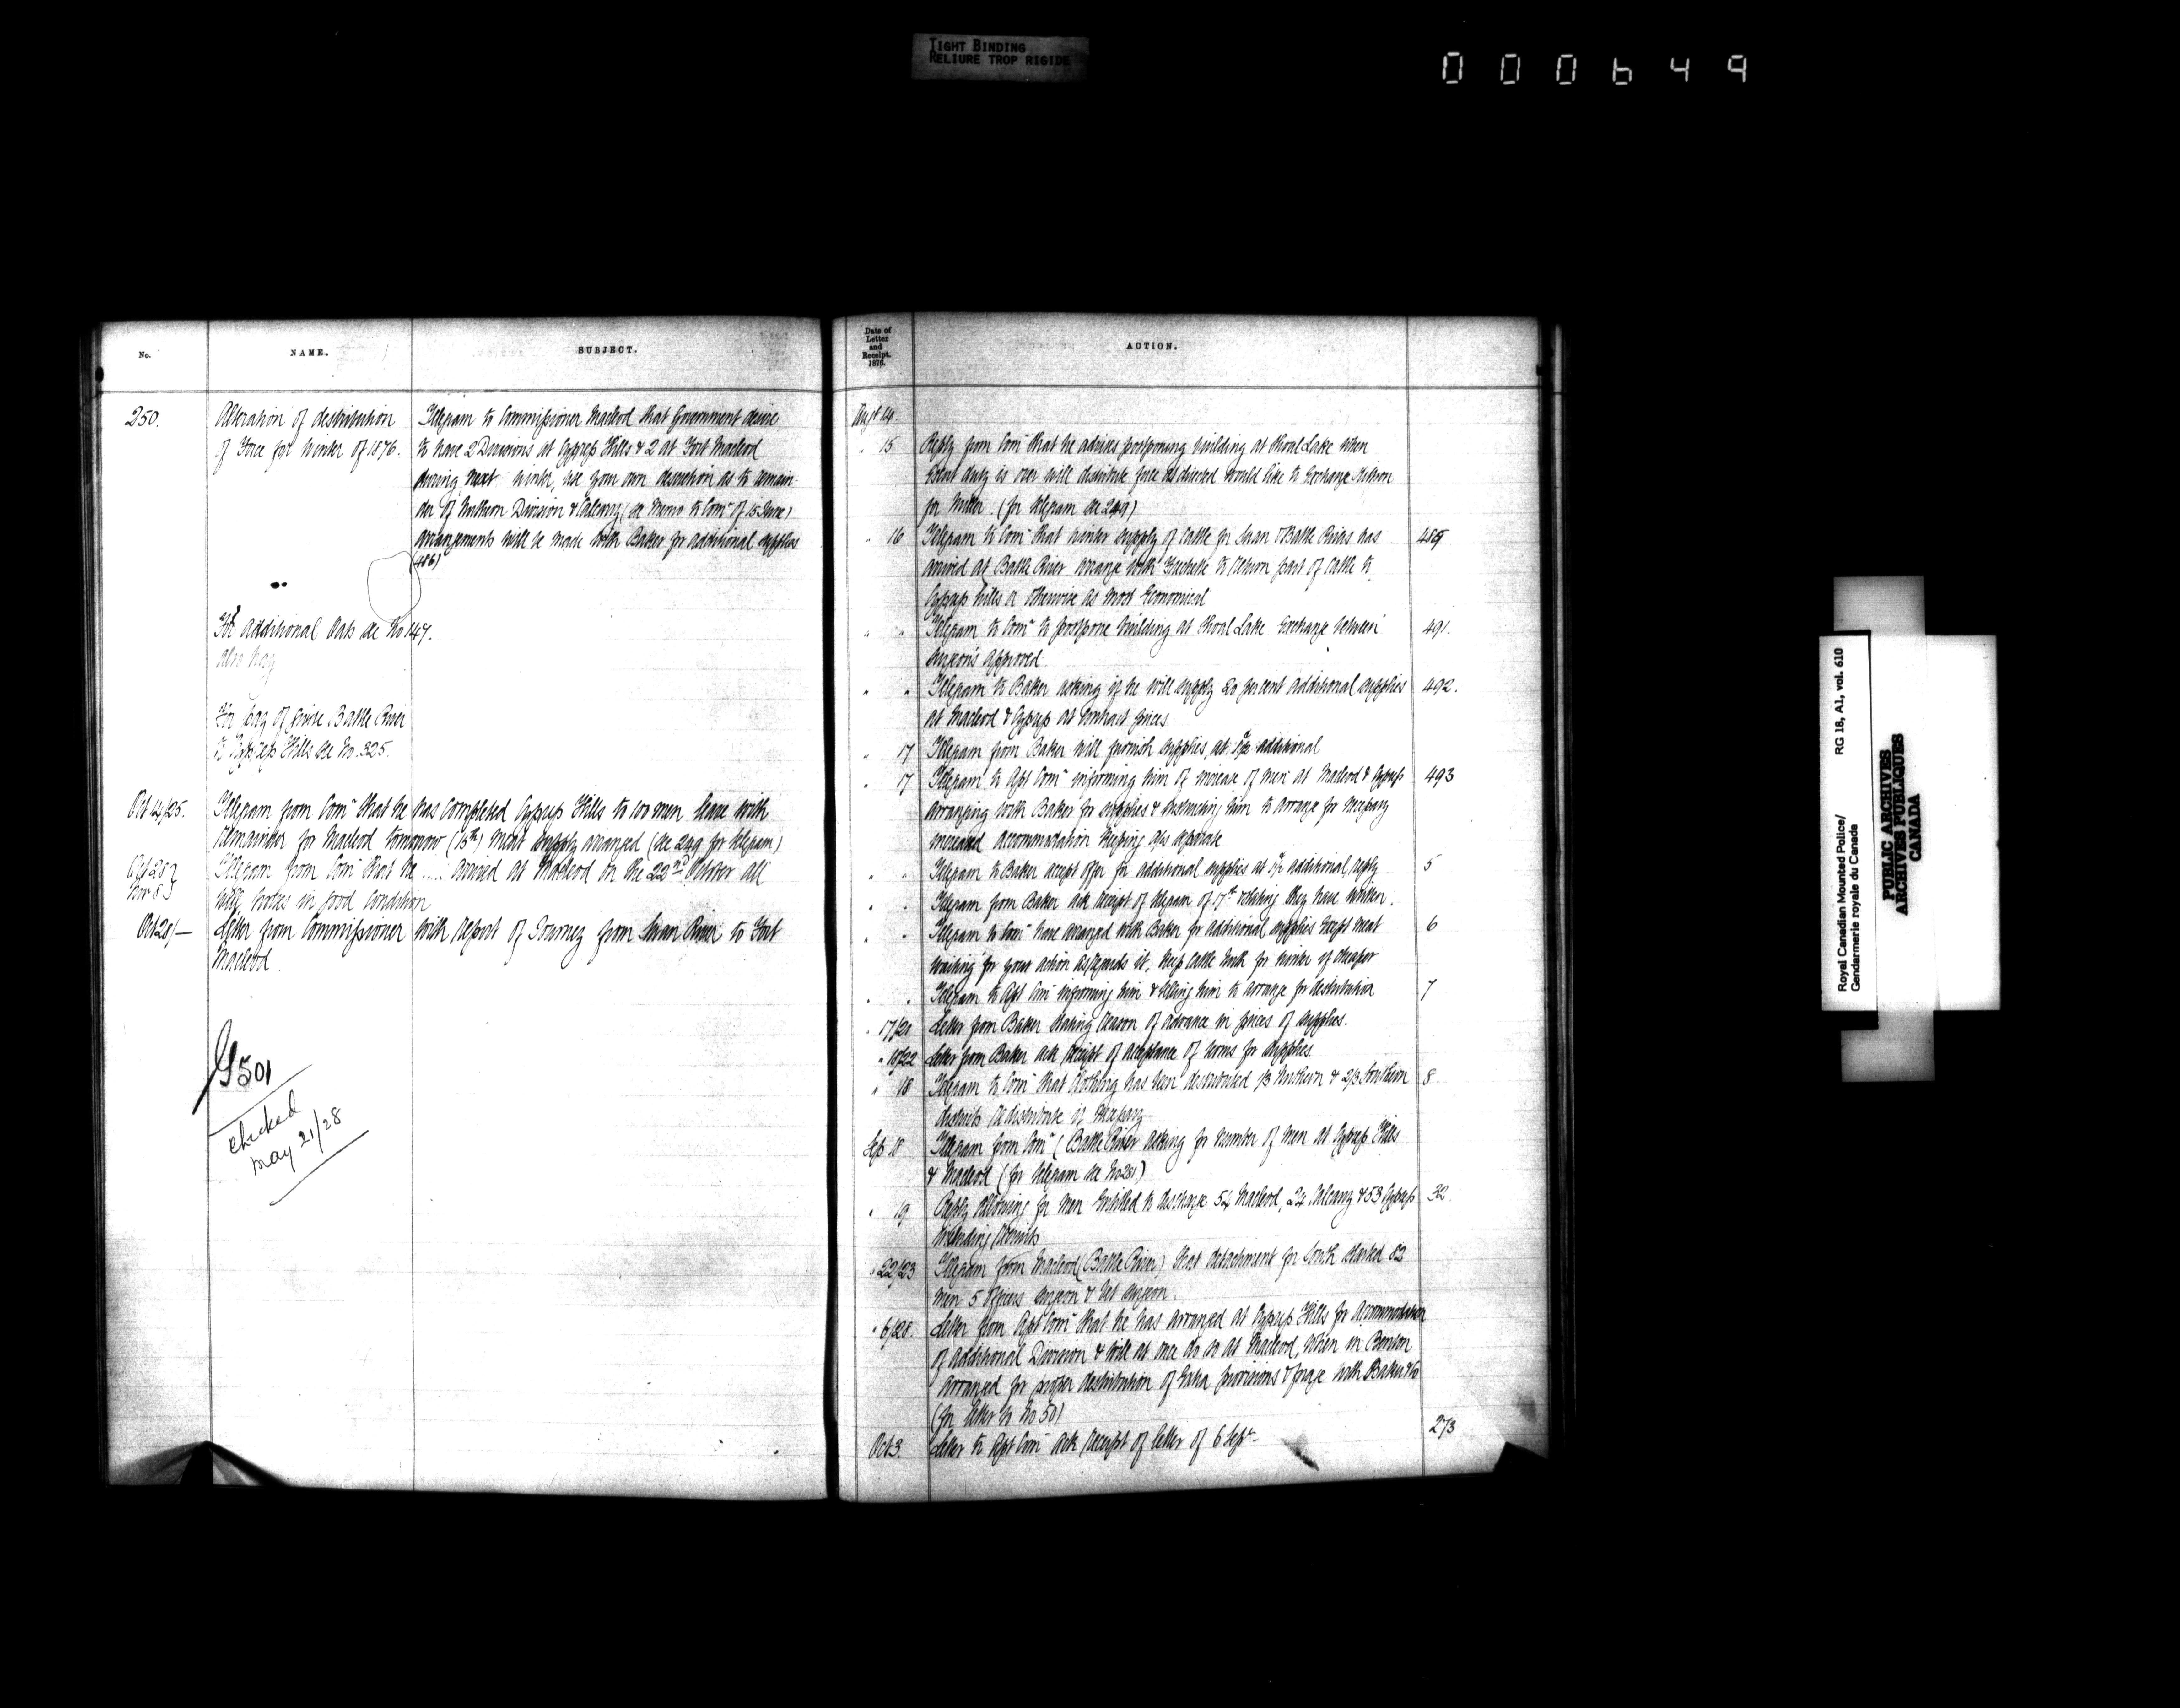 TIGHT BINDING
RELIURE TROP RIGIDE
000649
No.
NAME.
SUBJECT.
250.
Alteration of distribution
of Force for Winter of 1876.
Telegram to Commissioner Macleod that Government desire
to have 2 Divisions at Cypress Hills & 2 at Fort Macleod
during next winter, use your own discretion as to remain-
der of Northern Division & Calgary (see Memo to Comr of 15 June)
arrangements will be made with Baker for additional supplies
(486)
For additional Oats see No 147.
also Hay
For Battle River
to Cypress Hills see No. 325.
Oct 14/25. Telegram from Comr that he has completed Cypress Hills to 100 men leave with
remainder for Macleod tomorrow (15th) Meat supply arranged (see 249 for telegram)
Oct 28 Telegram from Comr that he arrived at Macleod on the 22nd October all
Nov 8 well, horses in good condition
Oct 28/— Letter from Commissioner with report of Journey from Swan River to Fort
Macleod.
G501
Checked
May 21/28
Date of
Letter
and
Receipt.
1876.
ACTION.
Augt 14.
" 15 Reply from Comr that he advises postponing building at Shoal Lake When
Escort duty is over will distribute force as directed would like to Exchange Kittson
for Miller. (for telegram see 249)
" 16 Telegram to Comr that winter supply of Cattle for Swan & Battle Rivers has 489
arrived at Battle River arrange with to return part of Cattle to
Cypress hills or otherwise as most Economical
" " Telegram to Comr to postpone building at Shoal Lake Exchange between 491.
Surgeons approved
" " Telegram to Baker asking if he will supply 20 percent additional supplies 492.
at Macleod & Cypress at Contract prices
" 17 Telegram from Baker will furnish supplies at additional
" 17 Telegram to Asst Comr informing him of increase of men at Macleod & Cypress 493
arranging with Baker for supplies & instructing him to arrange for necessary
increased accommodation Keeping a/cs separate
" " Telegram to Baker accept offer for additional supplies at additional, reply 5
" " Telegram from Baker ack receipt of telegram of 17th & stating they have written.
" " Telegram to Comr have arranged with Baker for additional supplies except meat 6
waiting for your action as regards it, Keep Cattle North for winter if cheaper
" " Telegram to Asst Comr informing him & telling him to arrange for distribution 7
" 17/21 Letter from Baker stating reason of advance in prices of supplies.
" 18/22 Letter from Baker ack receipt of acceptance of terms for supplies.
" 18 Telegram to Comr that Clothing has been distributed 1/3 Northern & 2/3 Southern 8
districts redistribute if necessary
Sep 18 Telegram from Comr (Battle River asking for number of men at Cypress Hills
& Macleod (for telegram see No 281)
" 19 Reply allowing for men entitled to discharge 54 Macleod, 24 Calgary & 53 Cypress 32.
including recruits
" 22/23 Telegram from Macleod (Battle River) that detachment for South started 82
men 5 Officers Surgeon & Vet Surgeon.
" 6/28. Letter from Asst Comr that he has arranged at Cypress Hills for accommodation
of additional Division & will at once do so at Macleod, When in Benton
arranged for proper distribution of Extra provisions & forage with Baker & Co
(for letter see No 501
Oct 3. Letter to Asst Comr ack receipt of letter of 6 Sept. 273
Royal Canadian Mounted Police/ RG 18, A1, vol. 610
Gendarmerie royale du Canada
PUBLIC ARCHIVES
ARCHIVES PUBLIQUES
CANADA